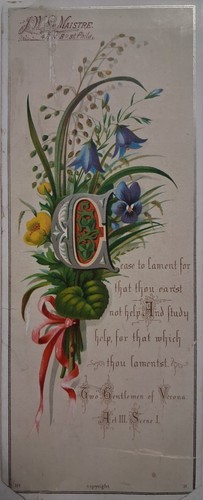 Cease to lament for
that thou canst
not help, And study
help, for that which
thou lamentst.
Two Gentlemen of Verona
Act III. Scene I.
Copyright